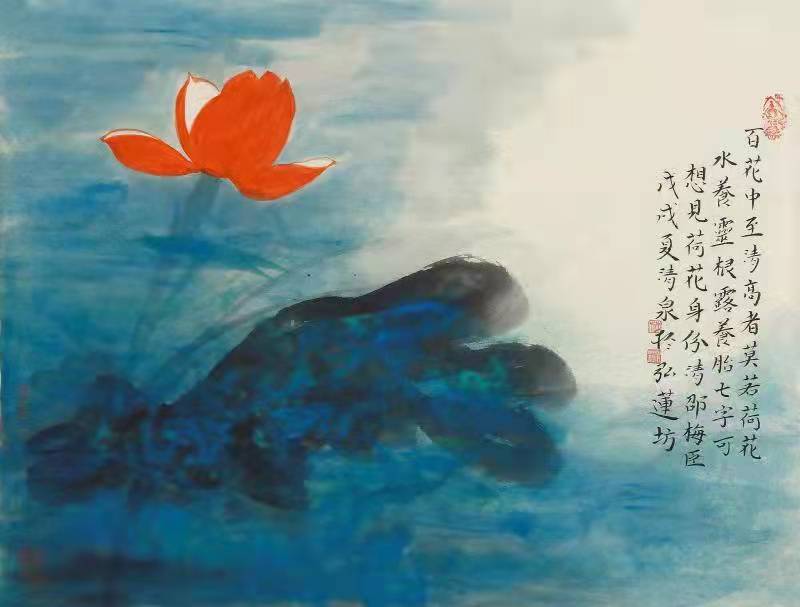 百花中至清高者莫若荷花
水養靈根露養胎七字可
想見荷花身份清邵梅臣
戊戌夏清泉於弘蓮坊